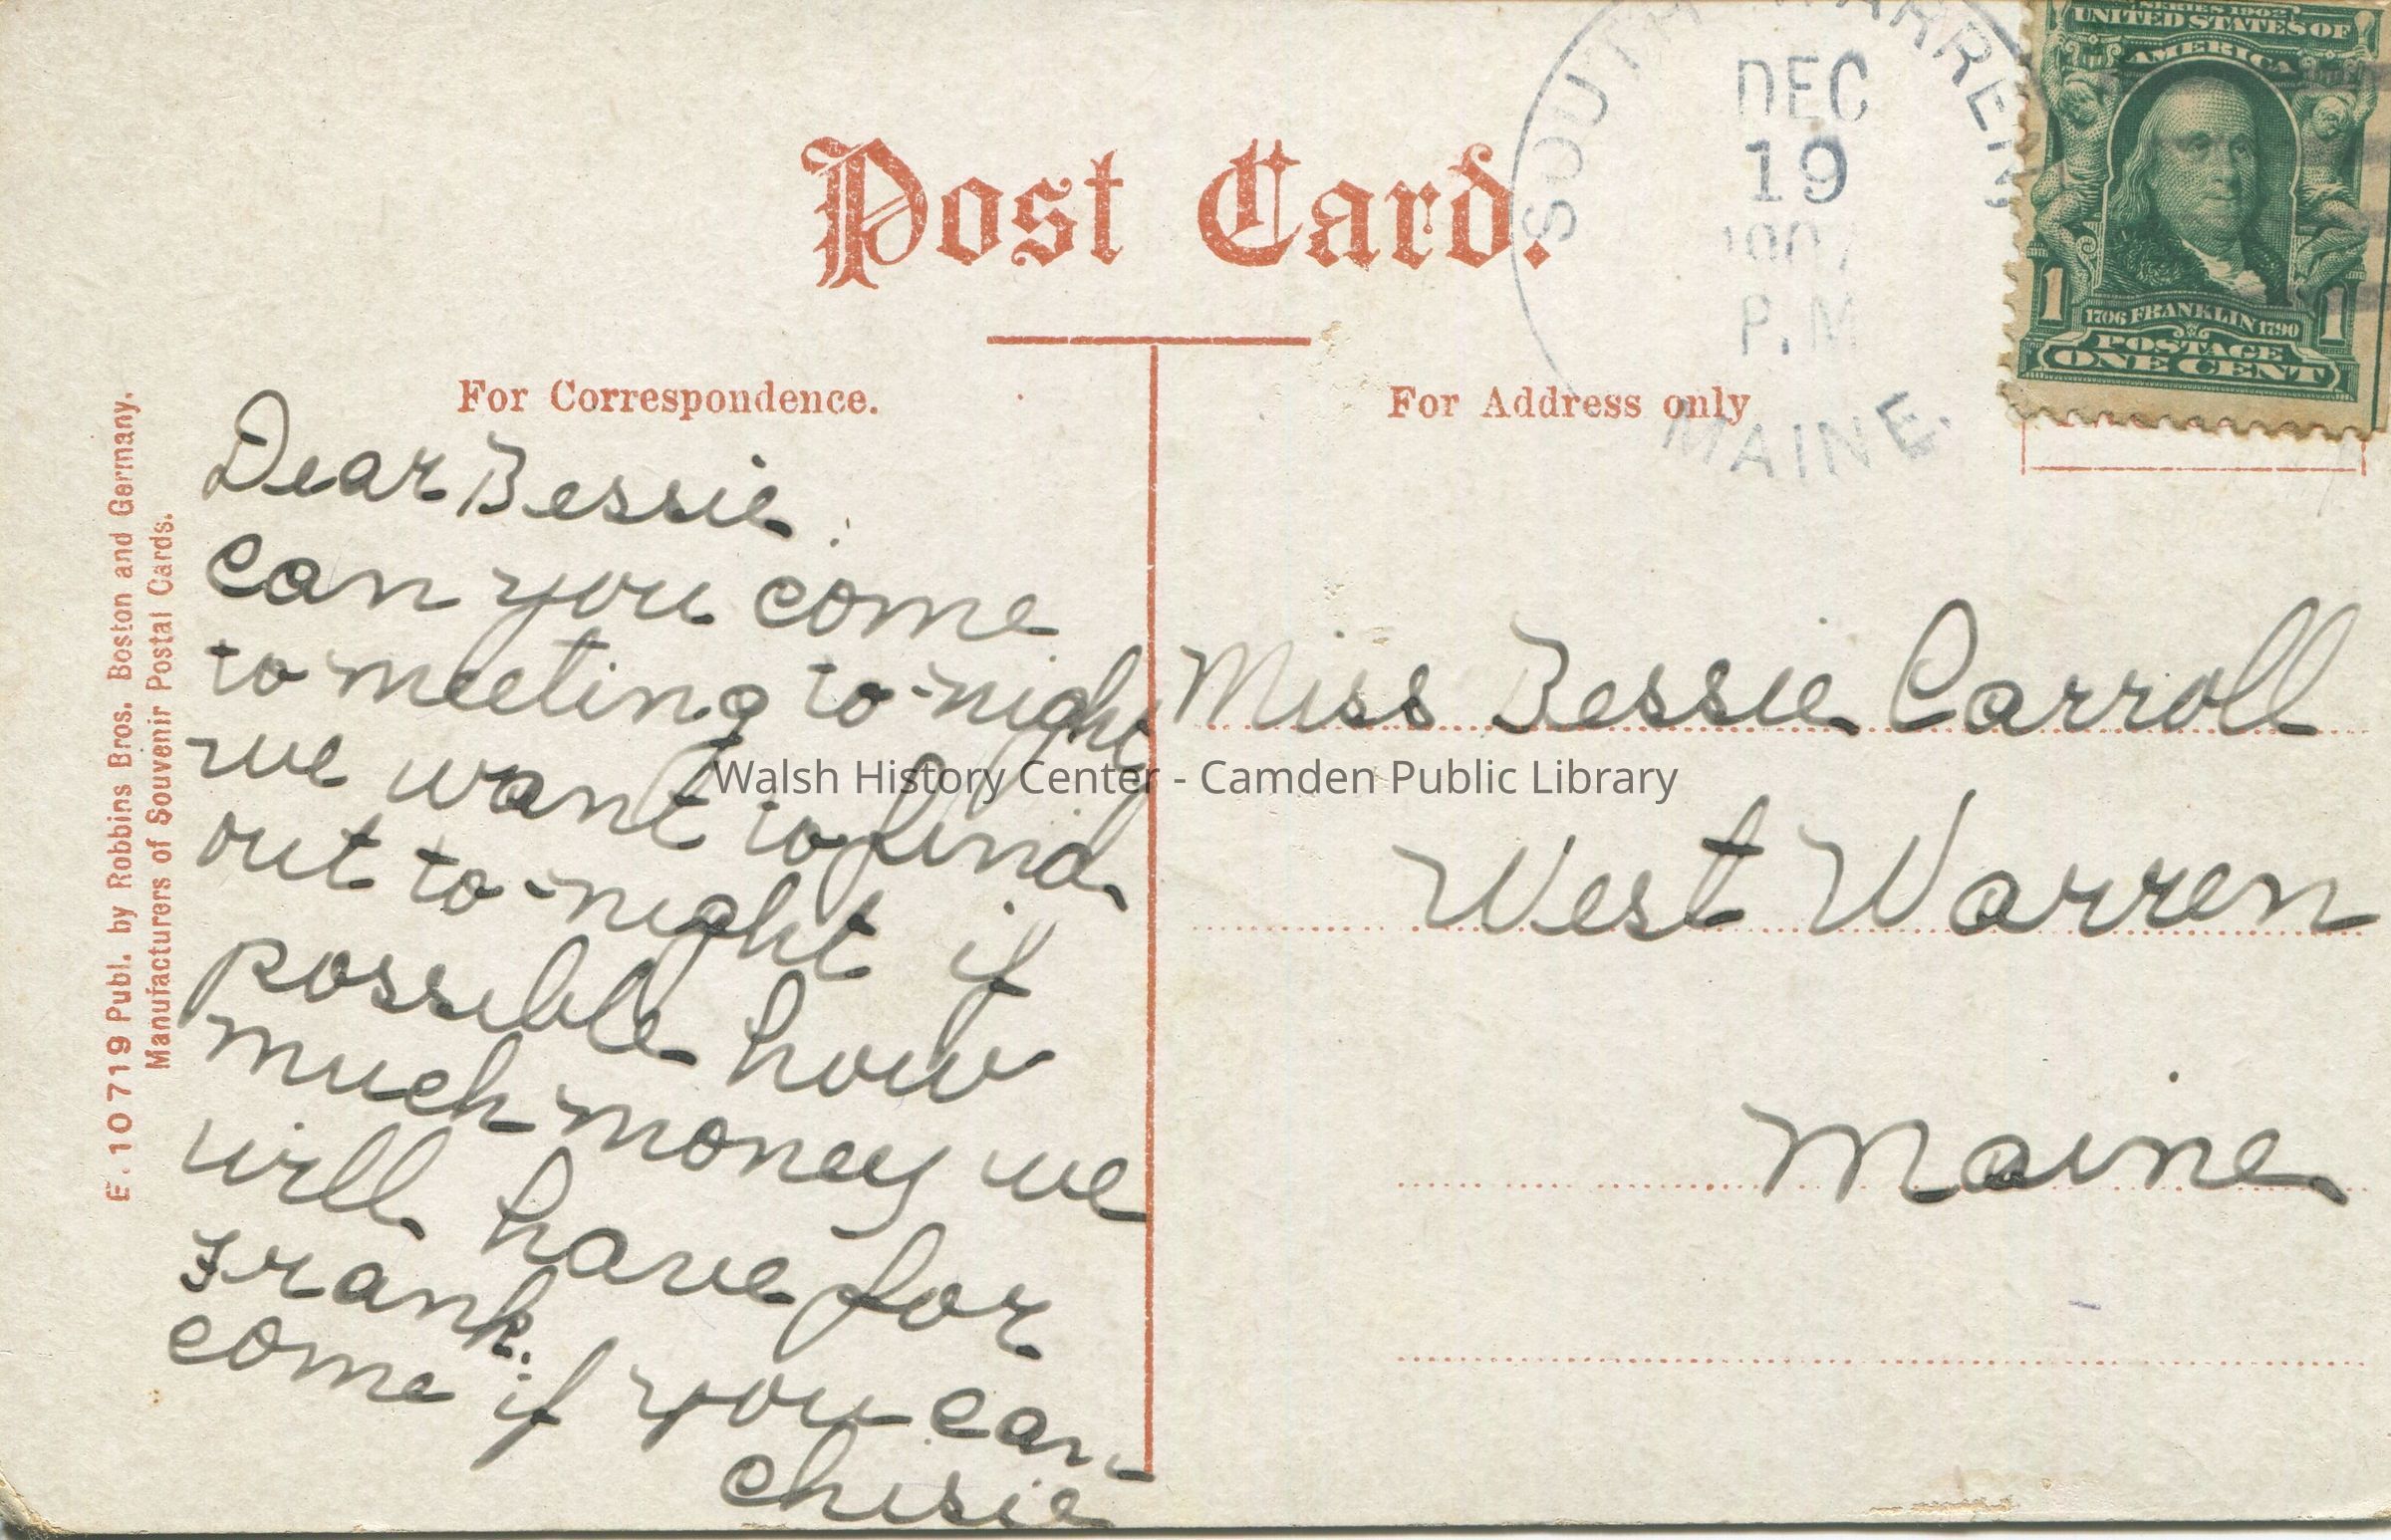 Post Card.
For Correspondence.
For Address only
SOUTH WARREN
DEC
19
P.M
MAINE.
SERIES 1902
UNITED STATES OF
AMERICA
1 1
1706 FRANKLIN 1790
POSTAGE
ONE CENT
E. 10719 Publ. by Robbins Bros. Boston and Germany.
Manufacturers of Souvenir Postal Cards.
Dear Bessie.
can you come
to meeting to-night
we want to find
out to-night if
possible how
much money we
will have for
Frank.
come if you can
Miss Bessie Carroll
West Warren
Maine
Walsh History Center - Camden Public Library